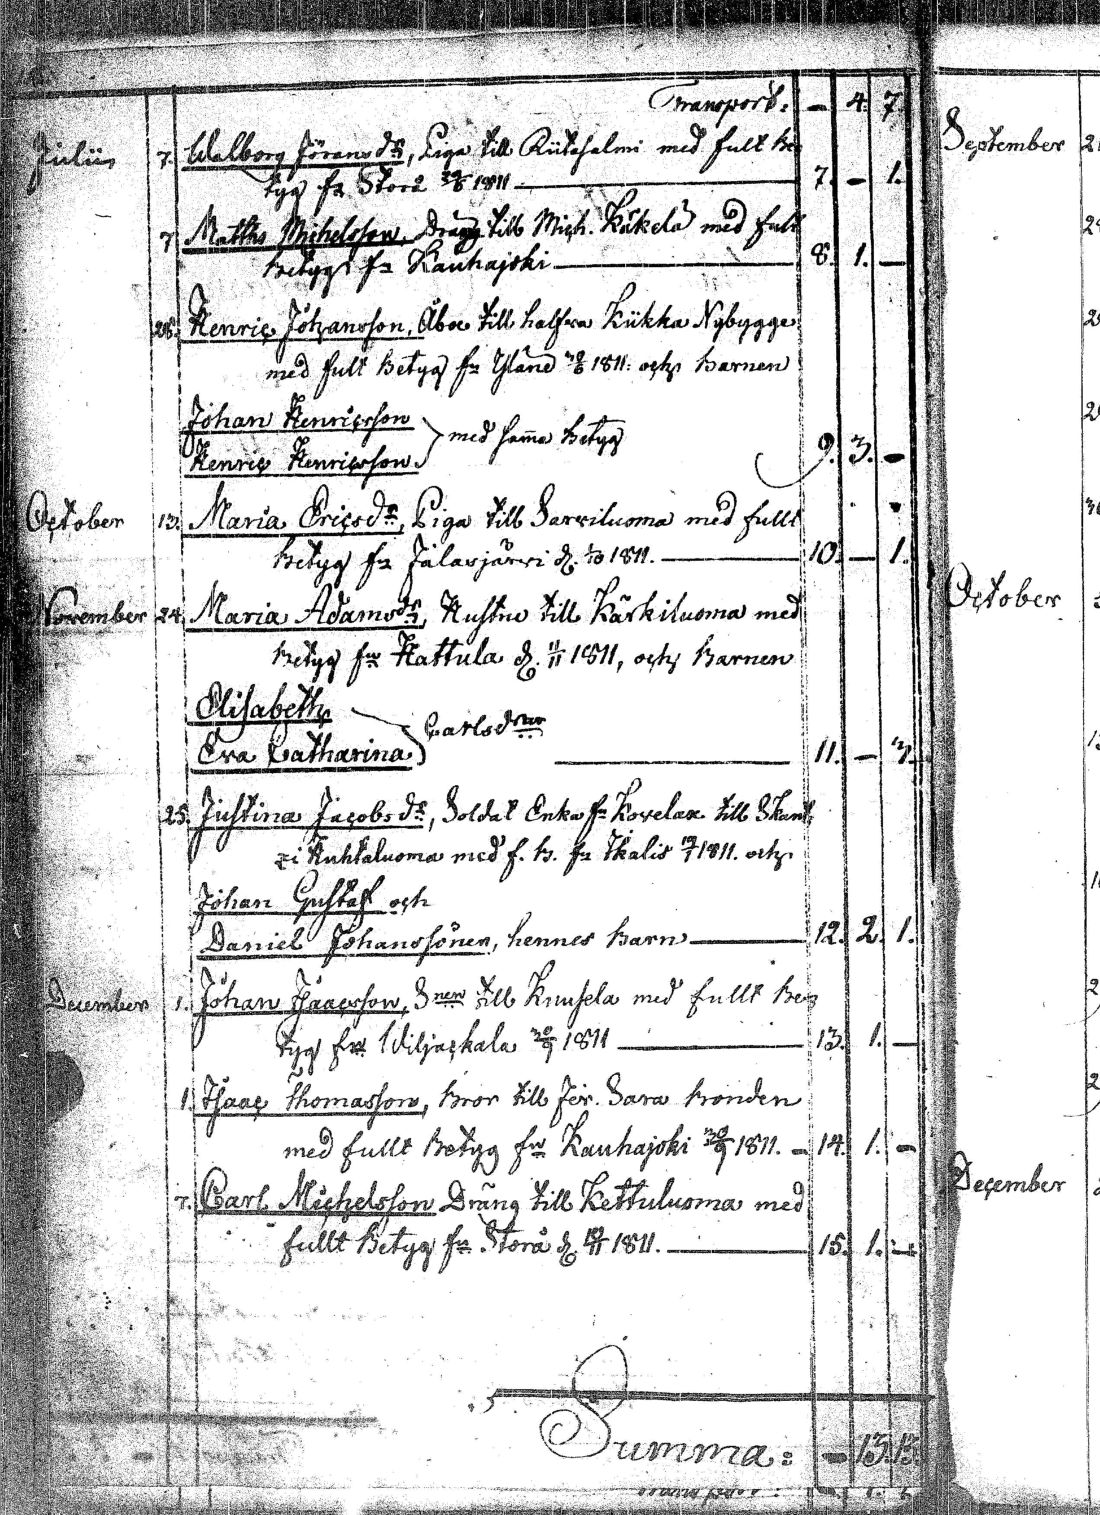 Transport: — 4. 7.
Julii 7. Walborg Jöransdr, Piga till Riitasalmi med fult Be-
tyg fr Storå 30/6 1811 — 7. — 1.
7 Matths Michelsson, Dräng till Mich. Käkelä med fult
Betyg fr Kauhajoki — 8. 1. —
28. Henric Johansson, Åboe till halfva Kiikka Nybygge
med fult Betyg fr Yläne 1811. och Barnen
Johan Henricsson
med samma Betyg
Henric Henricsson 9. 3. —
October 13. Maria Ericsdr, Piga till Sarviluoma med fullt
Betyg fr Jalasjärvi d. 1811. — 10. — 1.
November 24. Maria Adamsdr, Hustru till Kärkiluoma med
Betyg fr Hattula d. 11/11 1811, och Barnen
Elisabeth
Carlsdrar
Eva Catharina — 11. — 3.
25. Justina Jacobsdr, Soldat Enka fr Kovelax till
i Kuhtaluoma med f. B. fr Ikalis 1811. och
Johan Gustaf och
Daniel Johanssöner, hennes Barn — 12. 2. 1.
December 1. Johan Isaacsson, Snen till Knusela med fullt Be-
tyg frn Wiljackala 30/9 1811 — 13. 1. —
1. Isaac Thomasson, Bror till Jer. Sara Bonden
med fullt Betyg frn Kauhajoki 30/9 1811. — 14. 1. —
7. Carl Michelsson Dräng till Kettuluoma med
fullt Betyg frn Storå d. 1811. — 15. 1. —
Summa: — 13. 13.
September
October
December